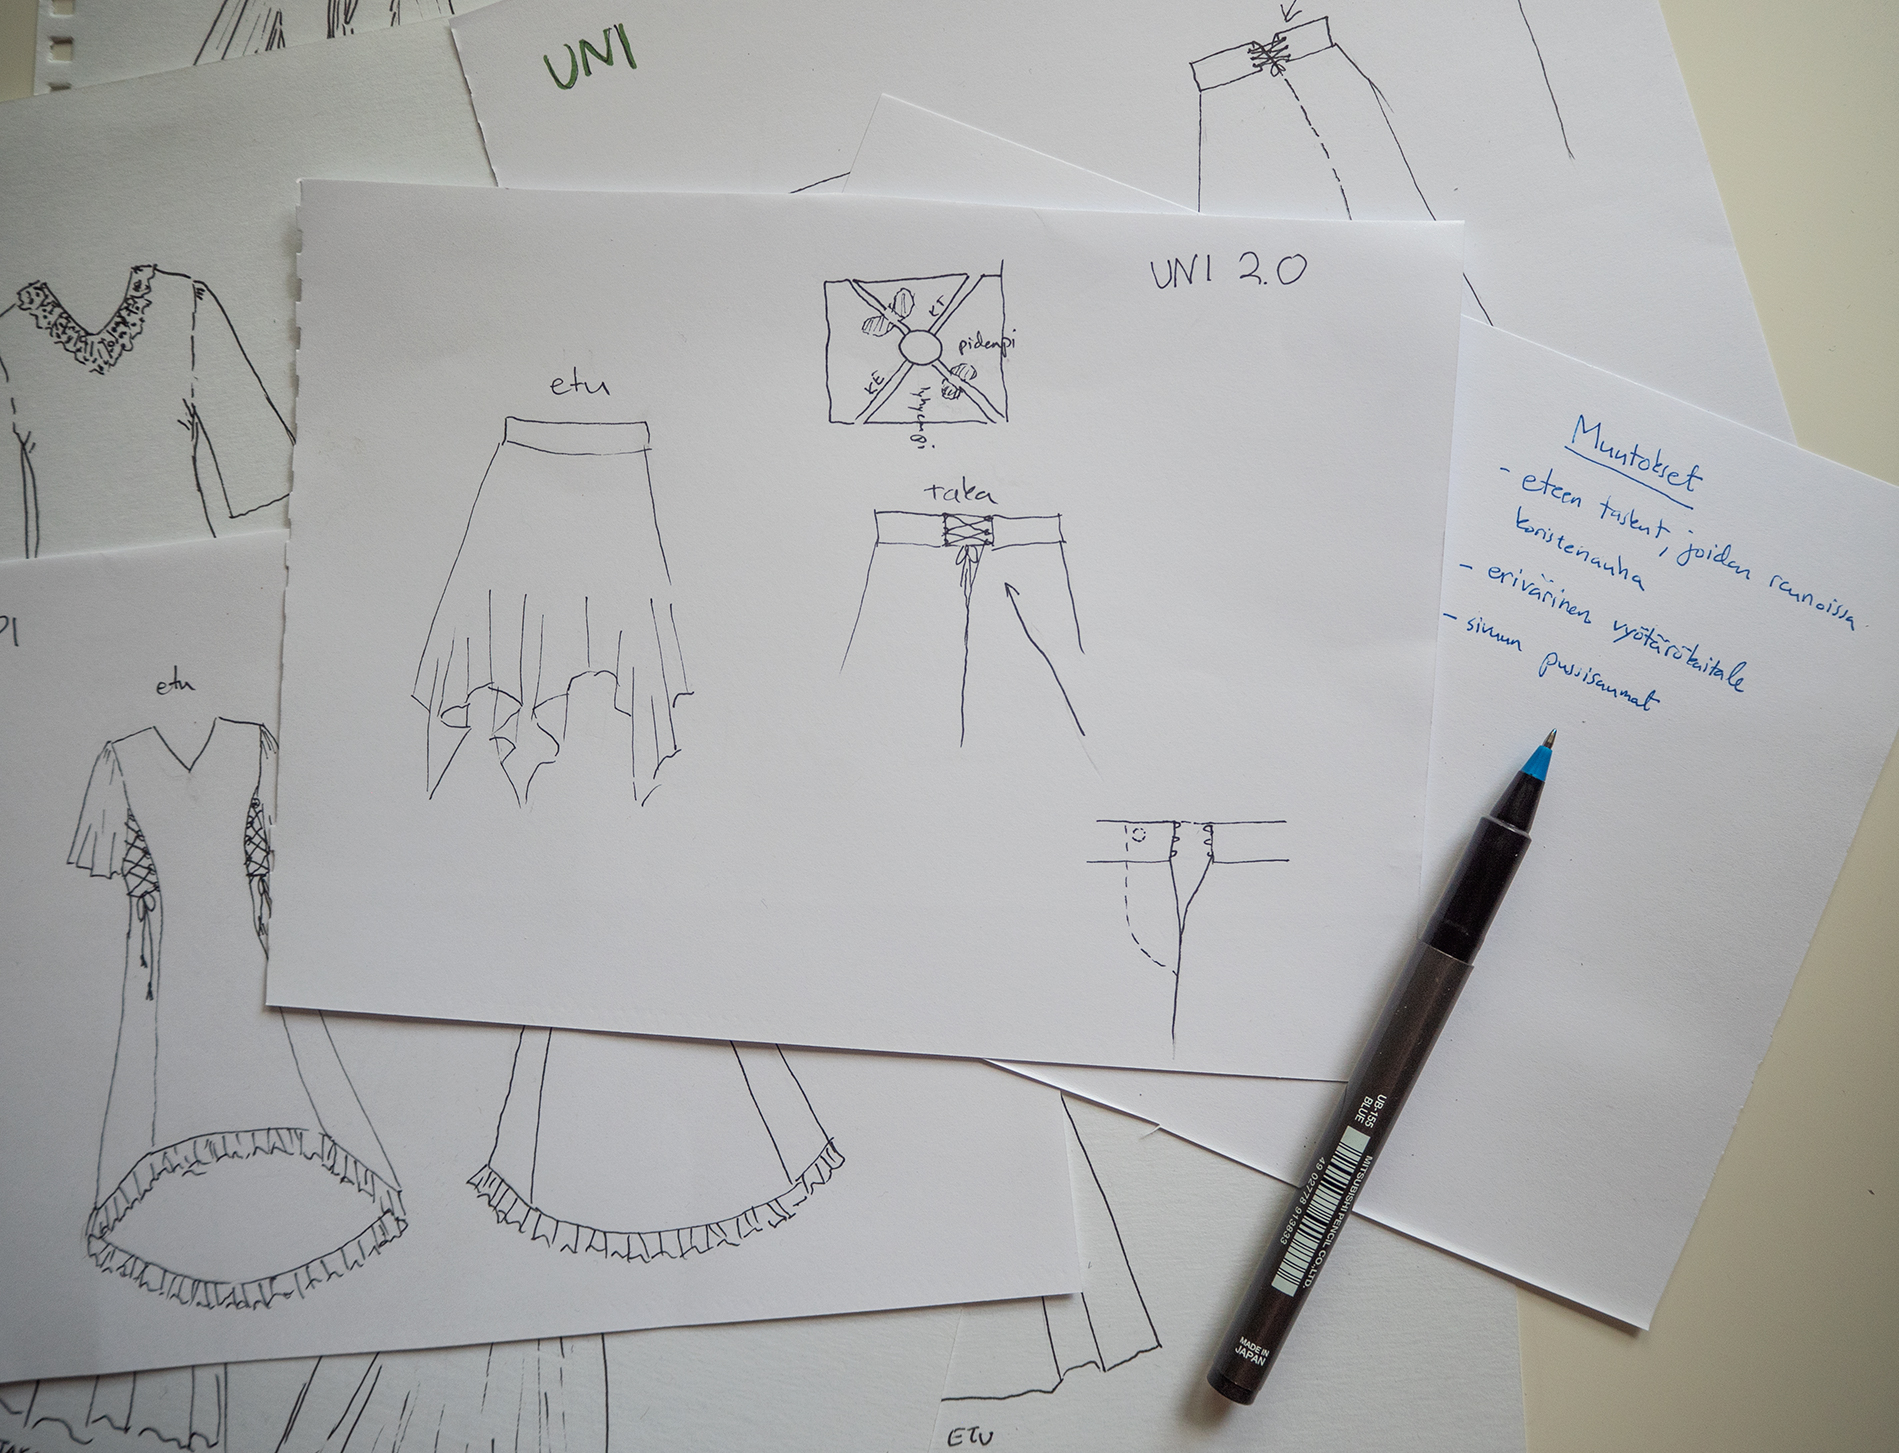 UNI
UNI 2.0
etu
KT
pidempi
KE
lyhyempi
taka
Muutokset
- eteen taskut, joiden reunoissa
koristenauha
- erivärinen vyötärökaitale
- sivuun pussisaumat
etu
UB-155
BLUE
MITSUBISHI PENCIL CO., LTD.
49 02778 913833
MADE IN
JAPAN
ETU